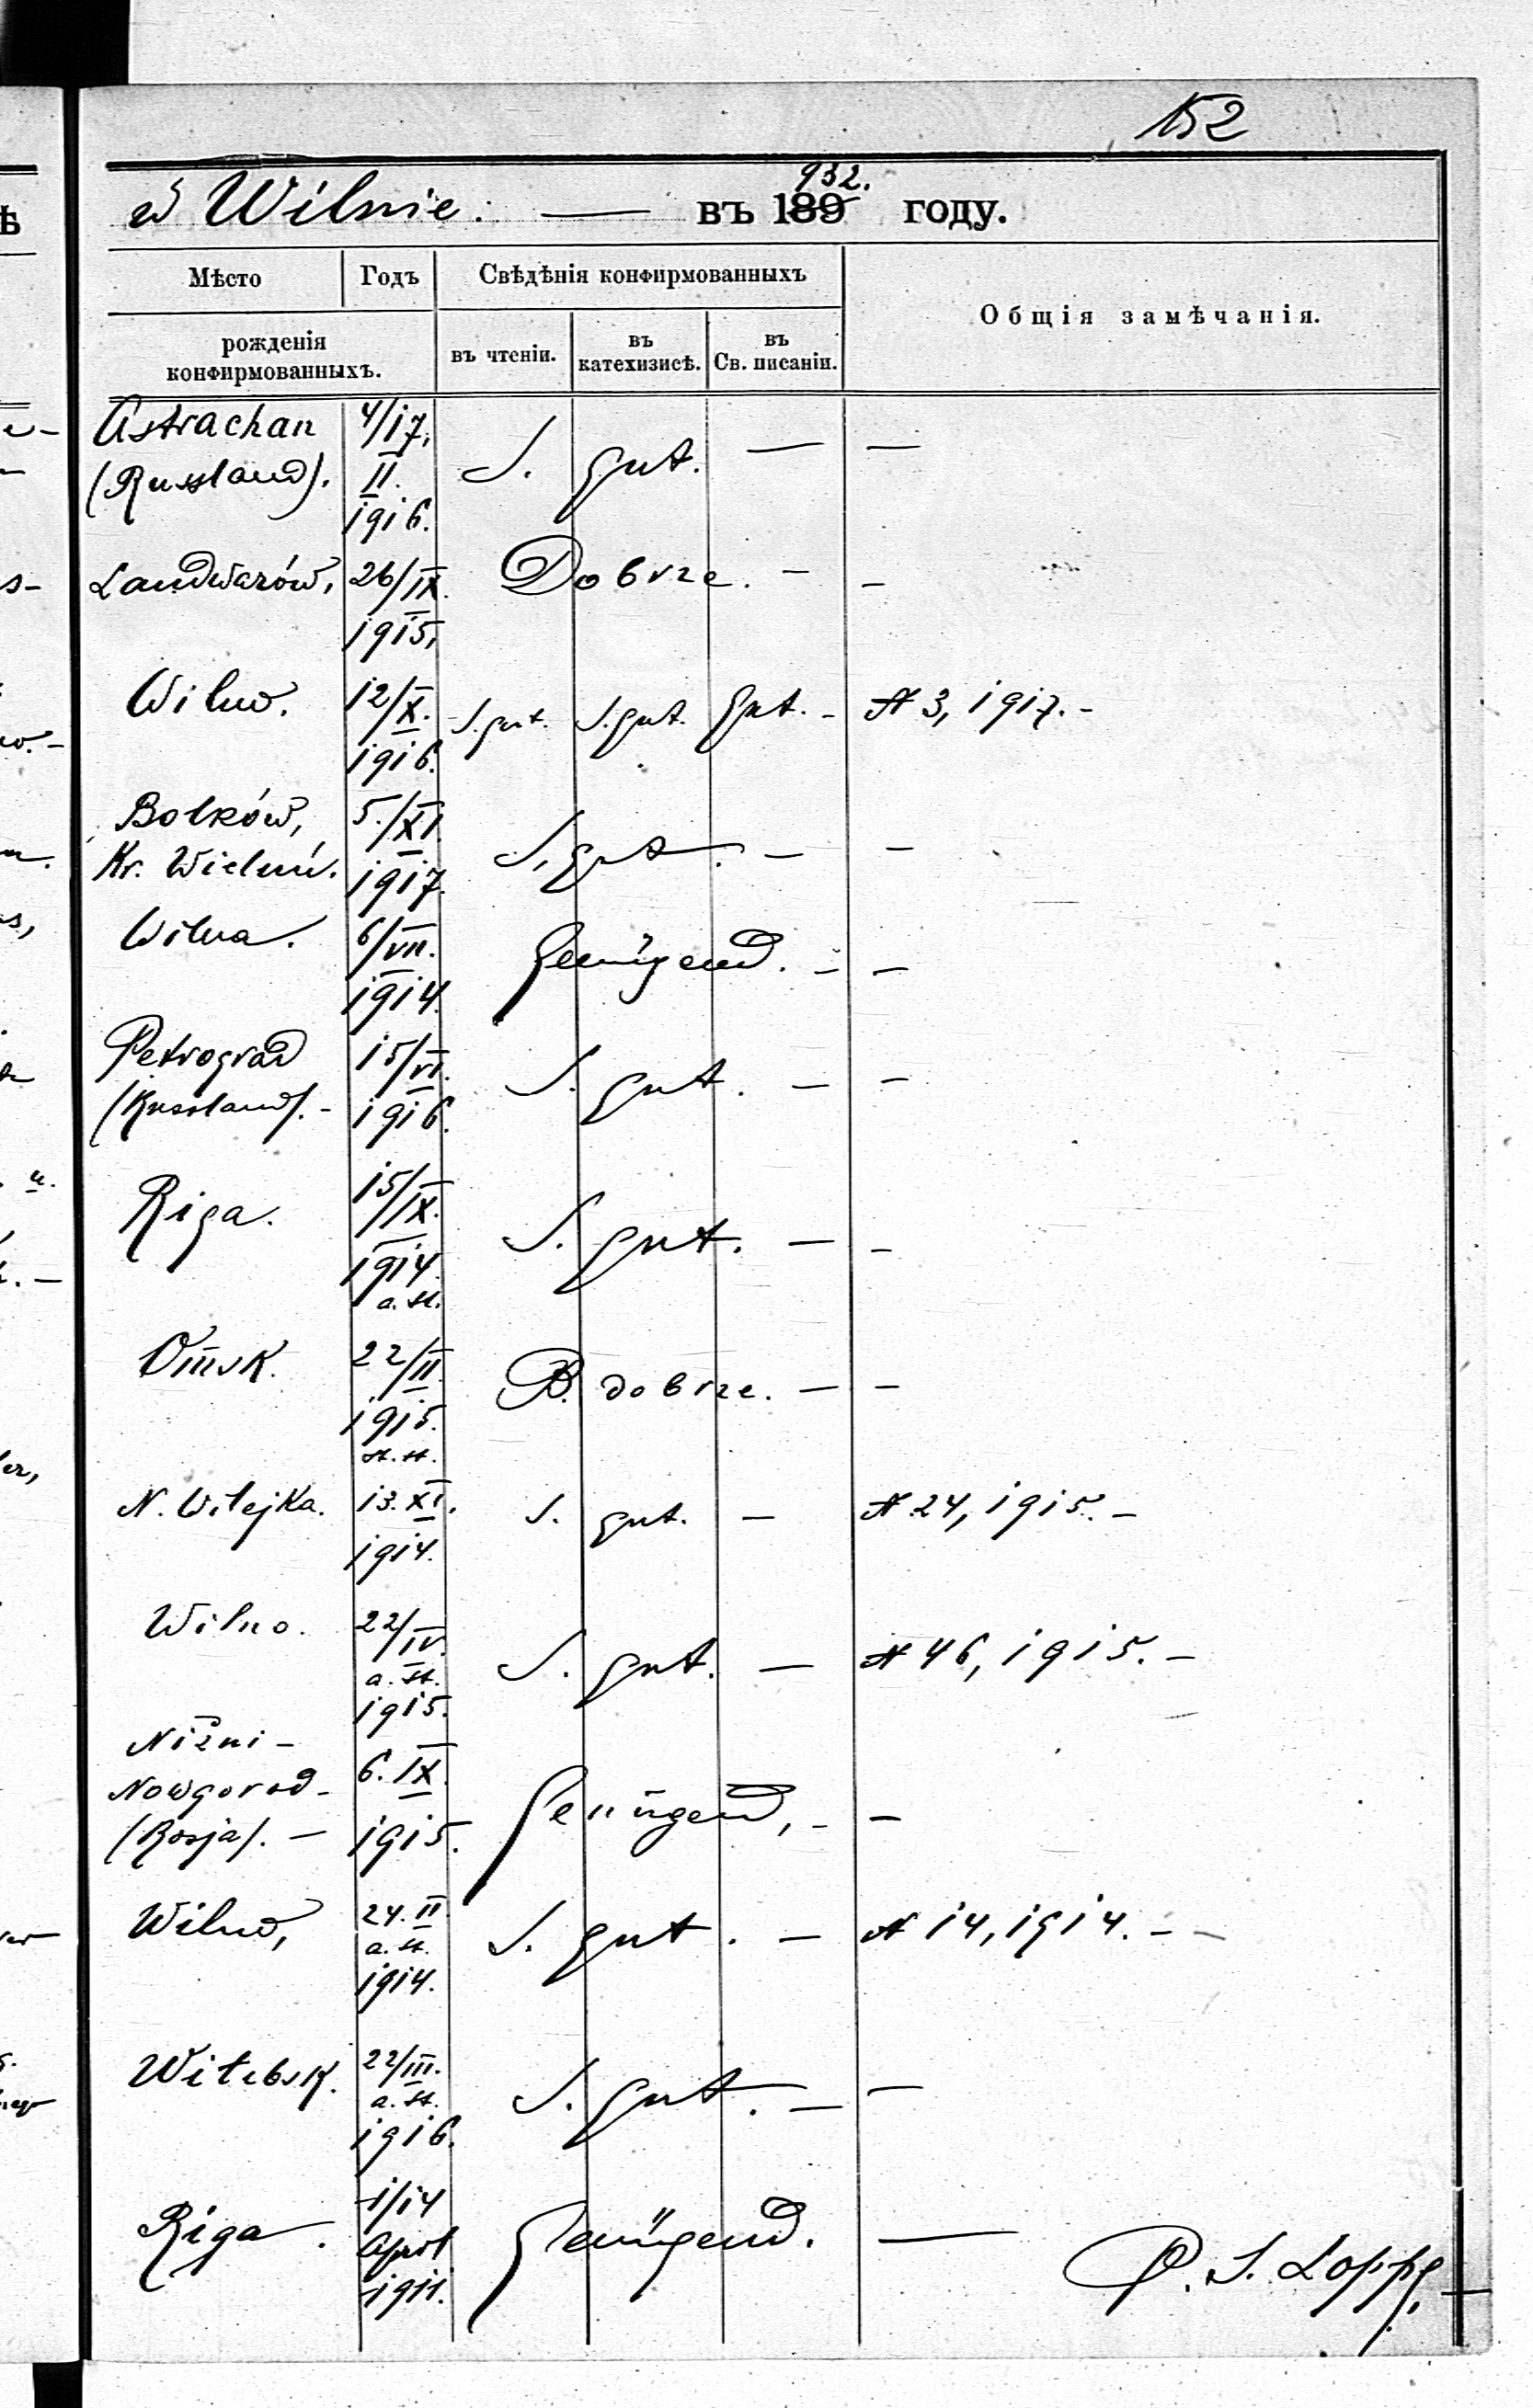 152
w Wilnie. — въ 189 932. году.
Мѣсто Годъ Свѣдѣнія конфирмованныхъ Общія замѣчанія.
рожденія конфирмованныхъ. въ чтеніи. въ катехизисѣ. въ Св. писаніи.
Astrachan 4/17, S. gut. — —
(Russland). II.
1916.
Landwarów, 26/IX. Dobrze. - -
1915,
Wilno. 12/X. S. gut. S. gut. gut. - N 3, 1917. -
1916.
Bolków, 5./XI. S. gut. - -
Kr. Wieluń. 1917.
Wilna. 6/VII. Genügend. - -
1914.
Petrograd 15/VI. S. gut. - -
(Russland). - 1916.
Riga. 15/IX. S. gut. - -
1914.
a. St.
Omsk. 22/II. B. dobrze. - -
1915.
st. st.
N. Wilejka. 13. XI. S. gut. - N 24, 1915. -
1914.
Wilno. 22/IV. S. gut. - N 46, 1915. -
a. St.
1915.
Niżni -
Nowgorod - 6. IX. Genügend, - -
(Rosja). - 1915.
Wilno, 24. II. S. gut. - N 14, 1914. - -
a. St.
1914.
Witebsk. 22/III. S. gut. - -
a. St.
1916.
Riga. 1/14 Genügend. —
April
1911.
P. S. Loppe